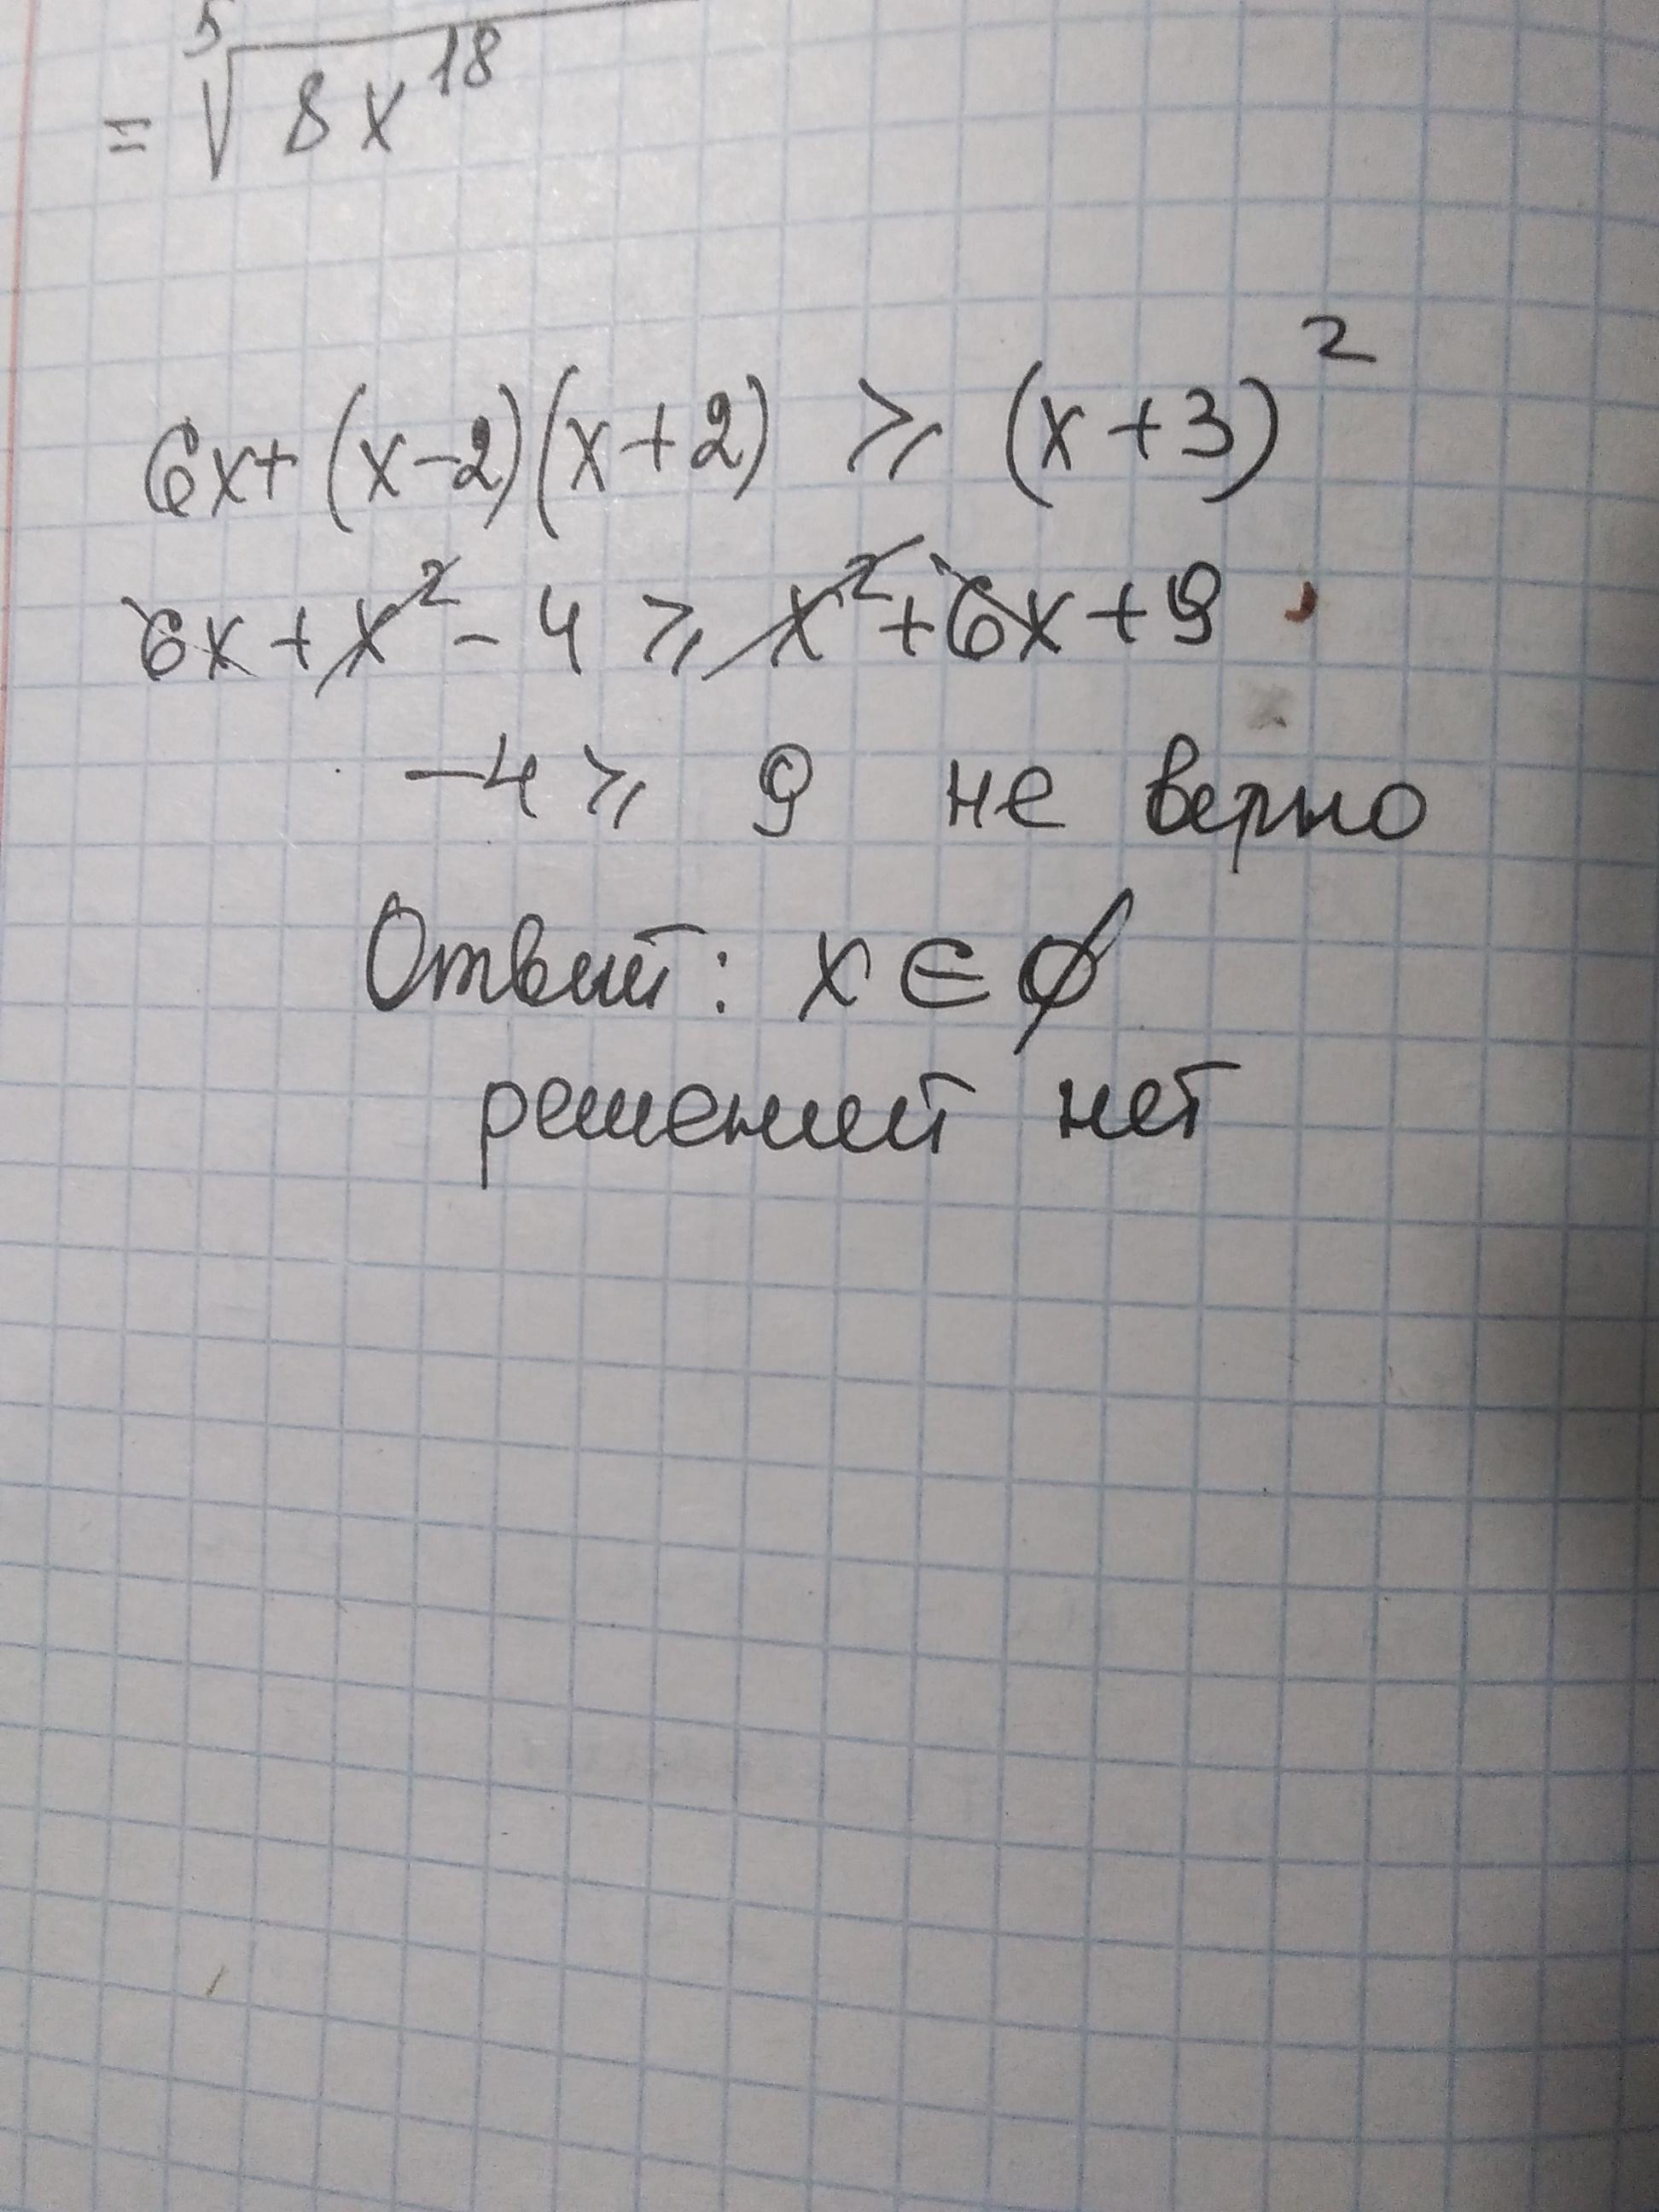 = ⁵√8x¹⁸
6x+(x-2)(x+2) ⩾ (x+3)²
6x+x²-4 ⩾ x²+6x+9
-4 ⩾ 9 не верно
Ответ: x∈∅
решений нет